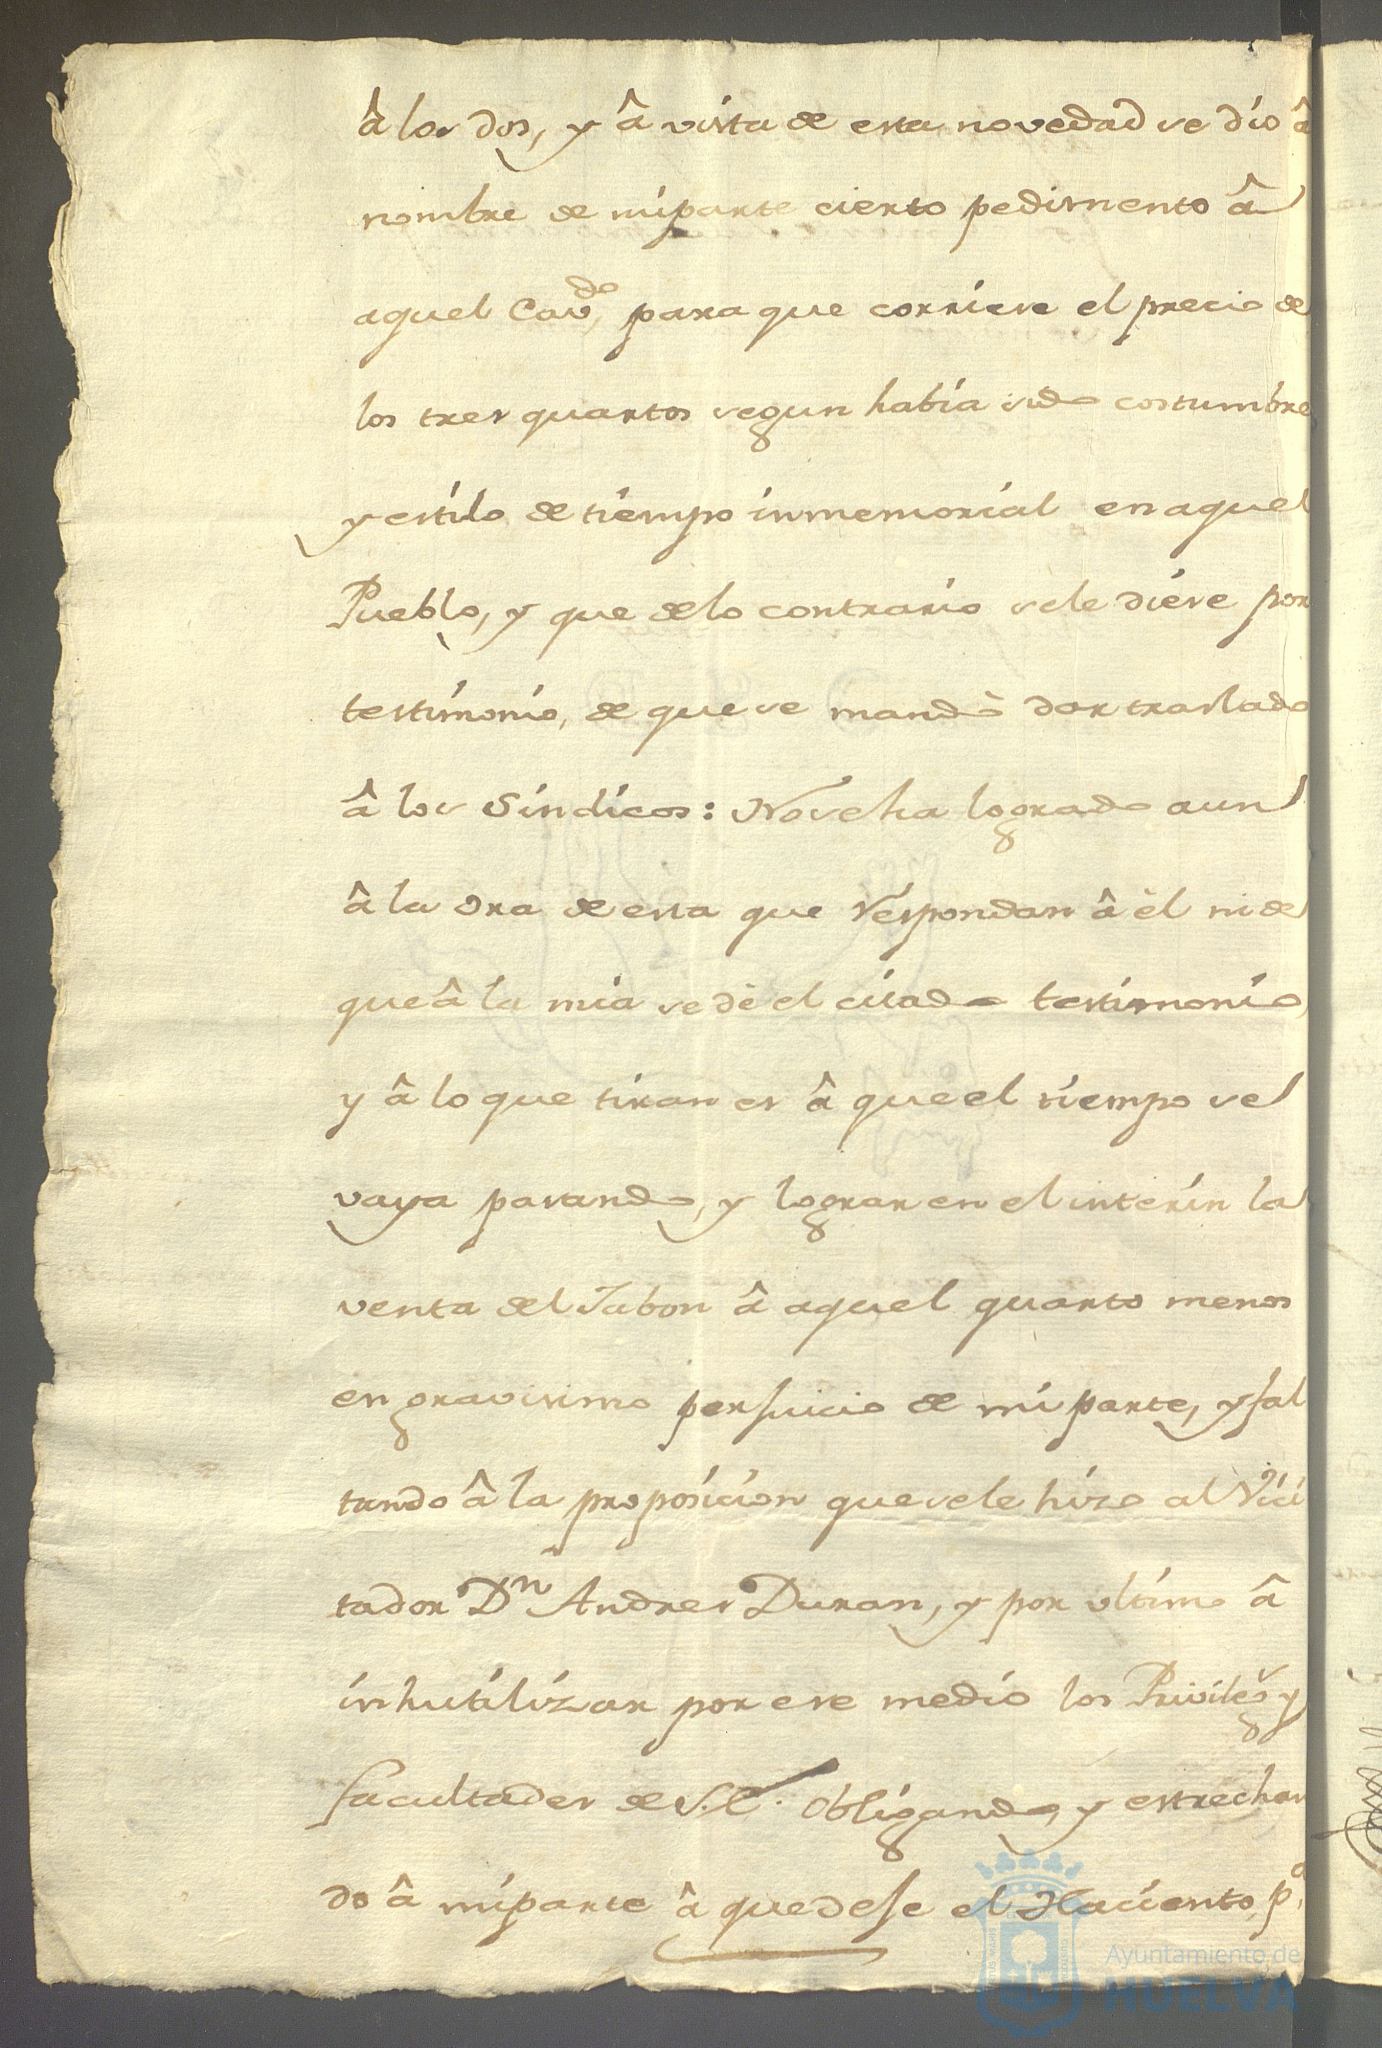 â los dos, y â vista de esta novedad se dio â
nombre de mi parte cierto pedimento â
aquel Cav.do para que corriese el precio de
los tres quartos segun habia sido costumbre
y estilo de tiempo inmemorial en aquel
Pueblo, y que de lo contrario se le diese por
testimonio, de que se mandò dar traslado
â los Sindicos: No se ha logrado aun
â la ora de esta que respondan â èl ni de
que â la mia se dè el citado testimonio
y â lo que tiran es â que el tiempo se
vaya pasando, y lograr en el interin la
venta del Jabon â aquel quarto menos
en gravisimo perjuicio de mi parte, y fal
tando â la proposicion que se le hizo al Vici
tador Dn Andres Duran, y por ultimo â
inhutilizar por ese medio los Privileg.s y
facultades de S.E. obligando, y estrechan
do â mi parte â que deje el Haciento, p.a
Ayuntamiento de
HUELVA